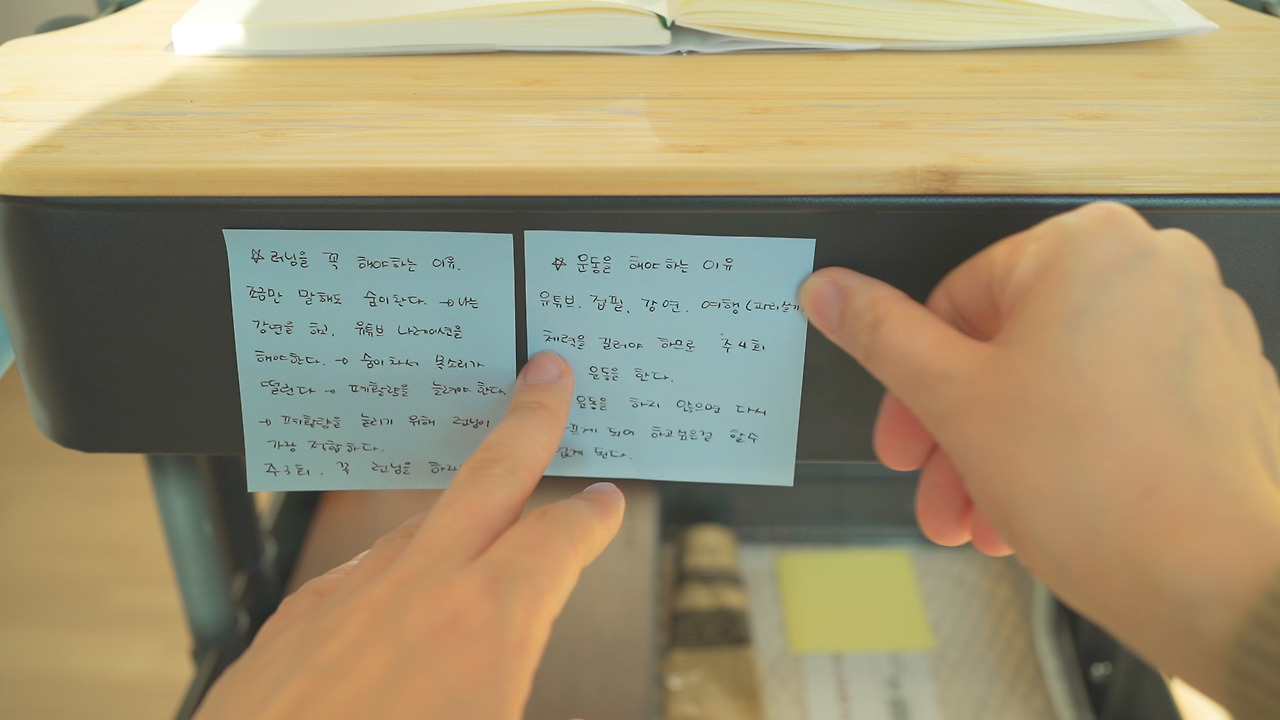 ☆ 러닝을 꼭 해야하는 이유.
조금만 말해도 숨이찬다. → 나는
강연을 하고, 유튜브 나레이션을
해야한다. → 숨이차서 목소리가
떨린다 → 폐활량을 늘려야 한다.
→ 폐활량을 늘리기 위해 러닝이
가장 적합하다.
주3회. 꼭 러닝을
☆ 운동을 해야하는 이유
유튜브. 집필, 강연. 여행 (파리살기
체력을 길러야 하므로 주4회
운동을 한다.
운동을 하지 않으면 다시
되어 하고싶은걸 할수
없게 된다.